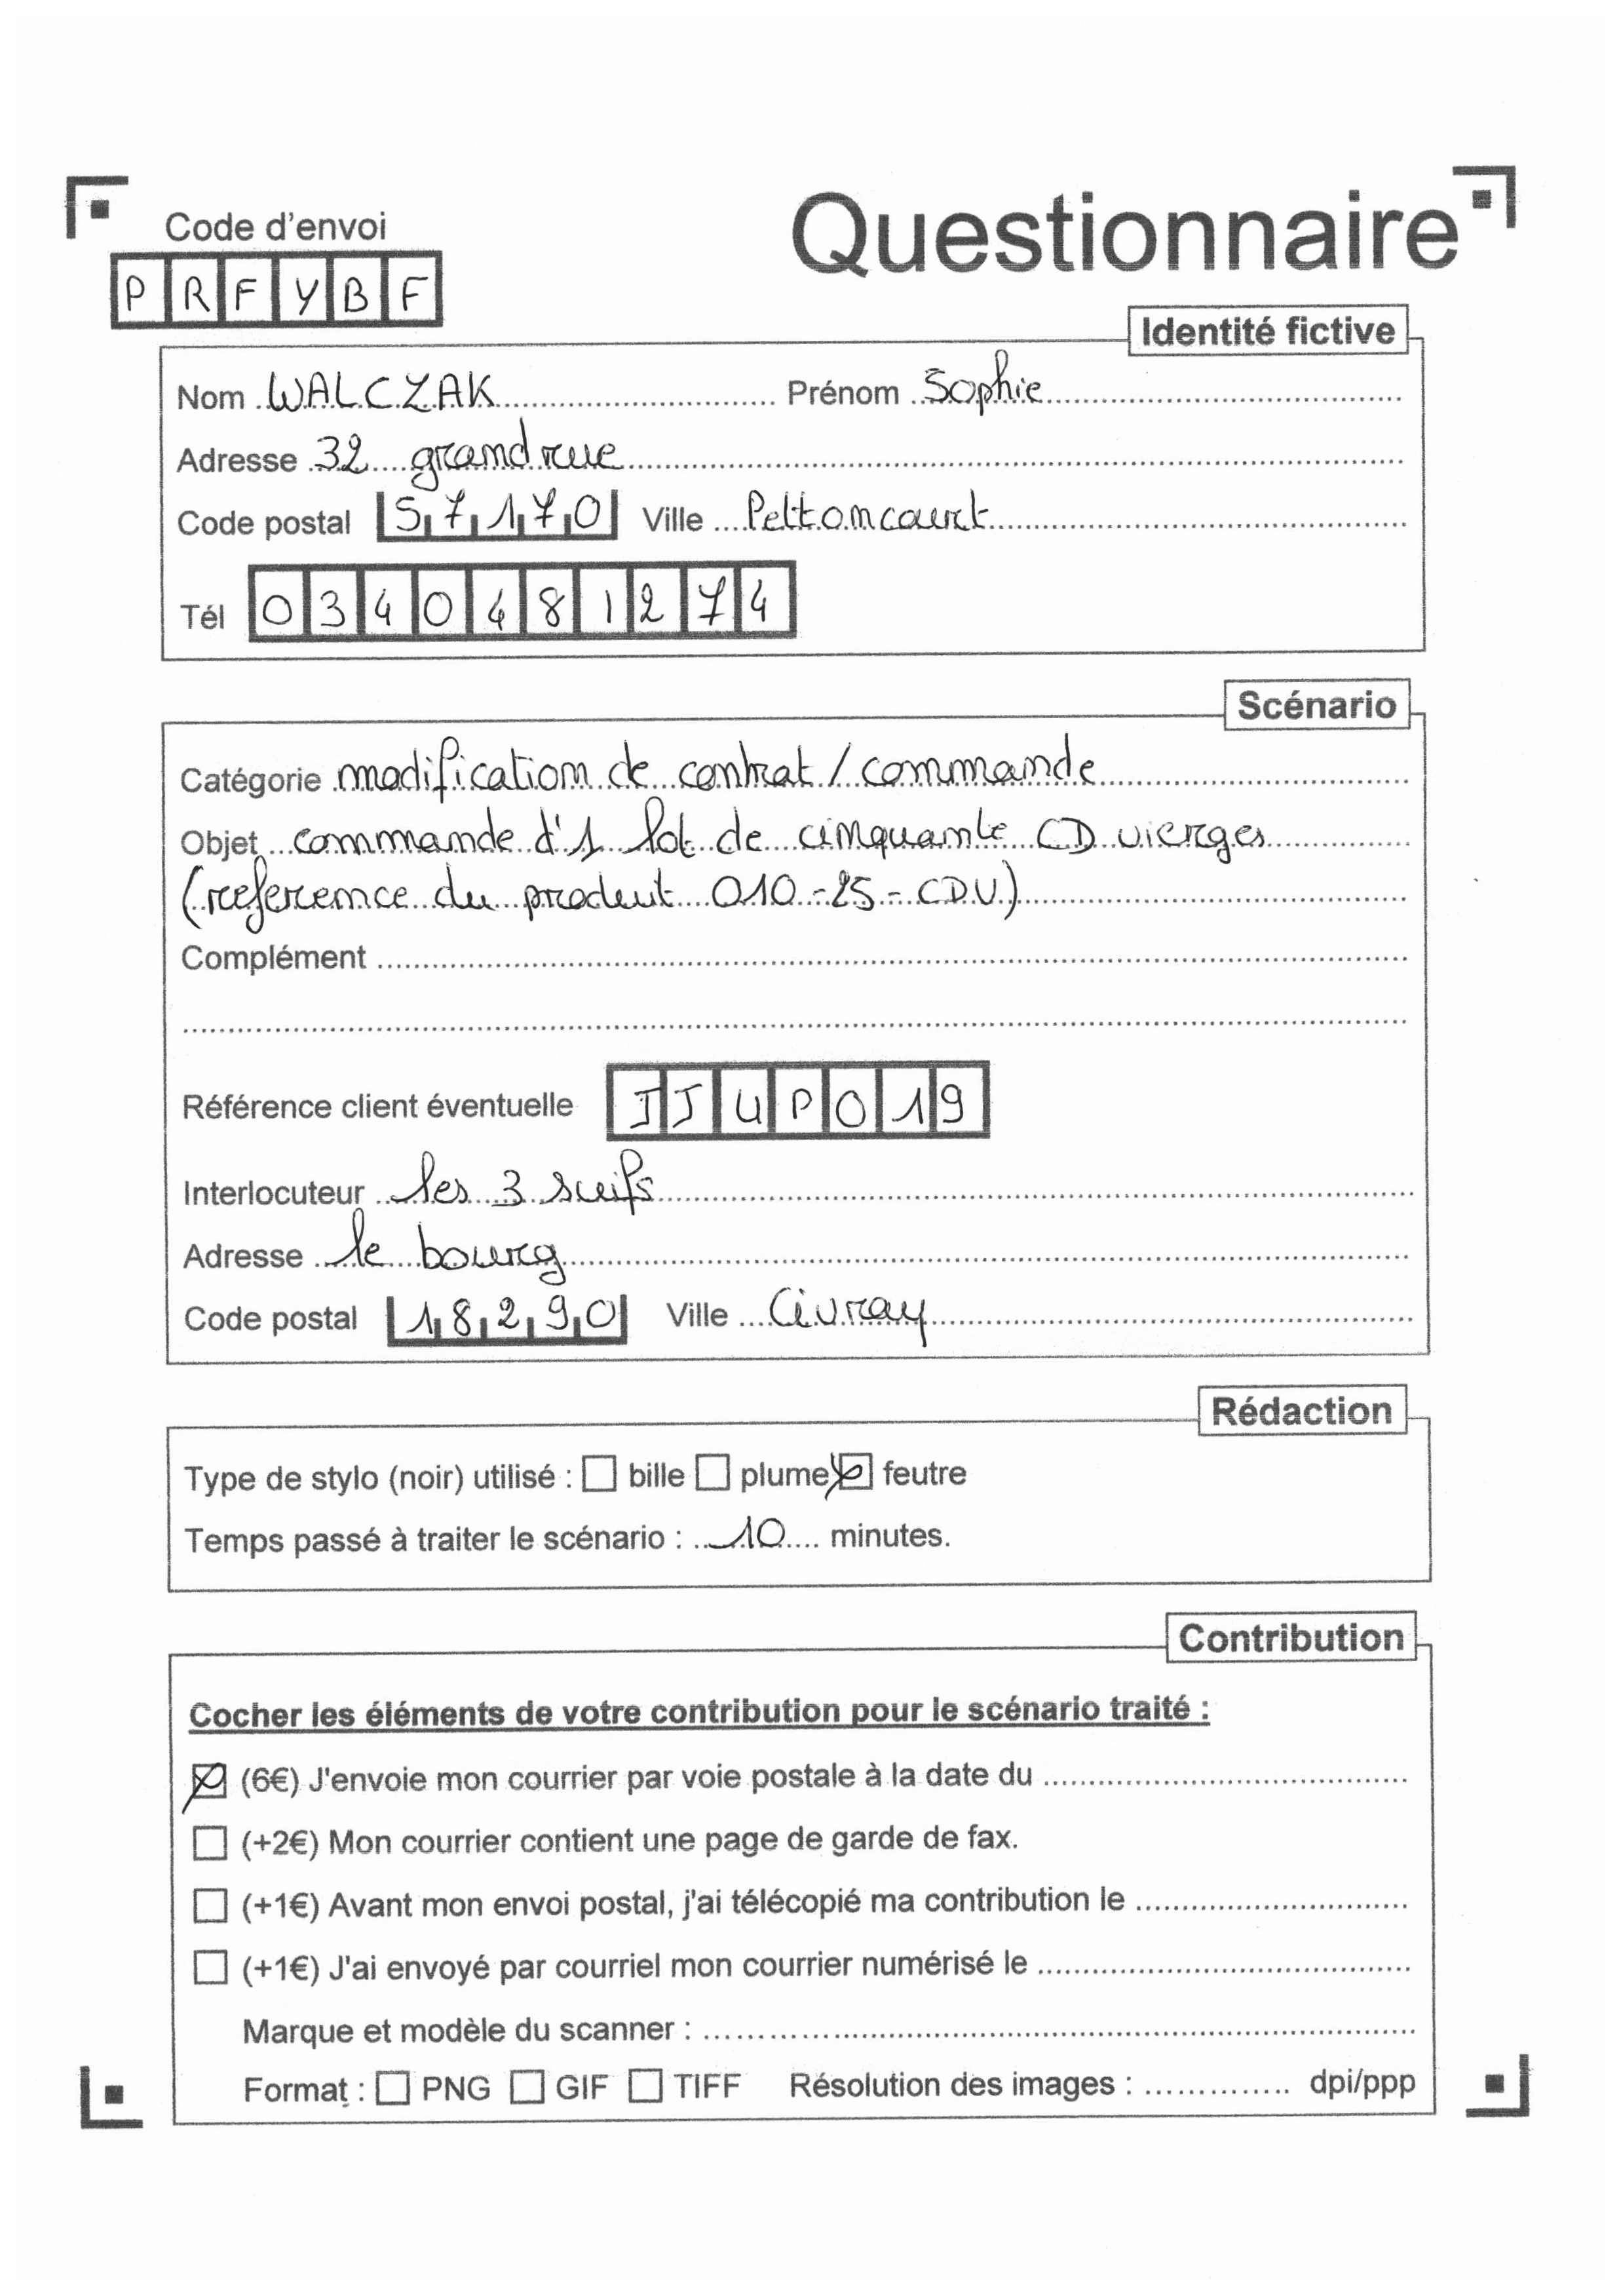 Questionnaire
Code d'envoi
PRFYBF
Identité fictive
Nom WALCZAK Prénom Sophie
Adresse 32 grand rue
Code postal 57170 Ville Pettoncourt
Tél 0340481274
Scénario
Catégorie modification de contrat / commande
Objet commande d'1 lot de cinquante CD vierges
(reference du produit 010-25-CDV)
Complément
Référence client éventuelle JJUPO19
Interlocuteur les 3 suifs
Adresse le bourg
Code postal 18290 Ville Civray
Rédaction
Type de stylo (noir) utilisé : bille plume feutre
Temps passé à traiter le scénario : 10 minutes.
Contribution
Cocher les éléments de votre contribution pour le scénario traité :
(6€) J'envoie mon courrier par voie postale à la date du
(+2€) Mon courrier contient une page de garde de fax.
(+1€) Avant mon envoi postal, j'ai télécopié ma contribution le
(+1€) J'ai envoyé par courriel mon courrier numérisé le
Marque et modèle du scanner :
Format : PNG GIF TIFF Résolution des images : dpi/ppp